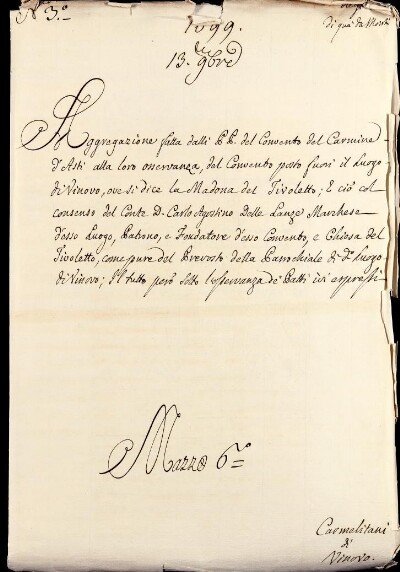 N. 3.º
di quà da Monti
1699.
13. 9bre
Aggregazione fatta dalli P.P. del Convento del Carmine
d'Asti alla loro osservanza, del Convento posto fuori il Luogo
di Vinovo, ove si dice la Madona del Tivoletto; E ciò col
consenso del Conte D. Carlo Agostino delle Lanze Marchese
d'esso Luogo, Patrono, e Fondatore d'esso Convento, e Chiesa del
Tivoletto, come pure del Prevosto della Parrochiale di d.º Luogo
di Vinovo; Il tutto però sotto l'osservanza de' Patti ivi espressi.
Mazzo 6.º
Carmelitani
di
Vinovo.